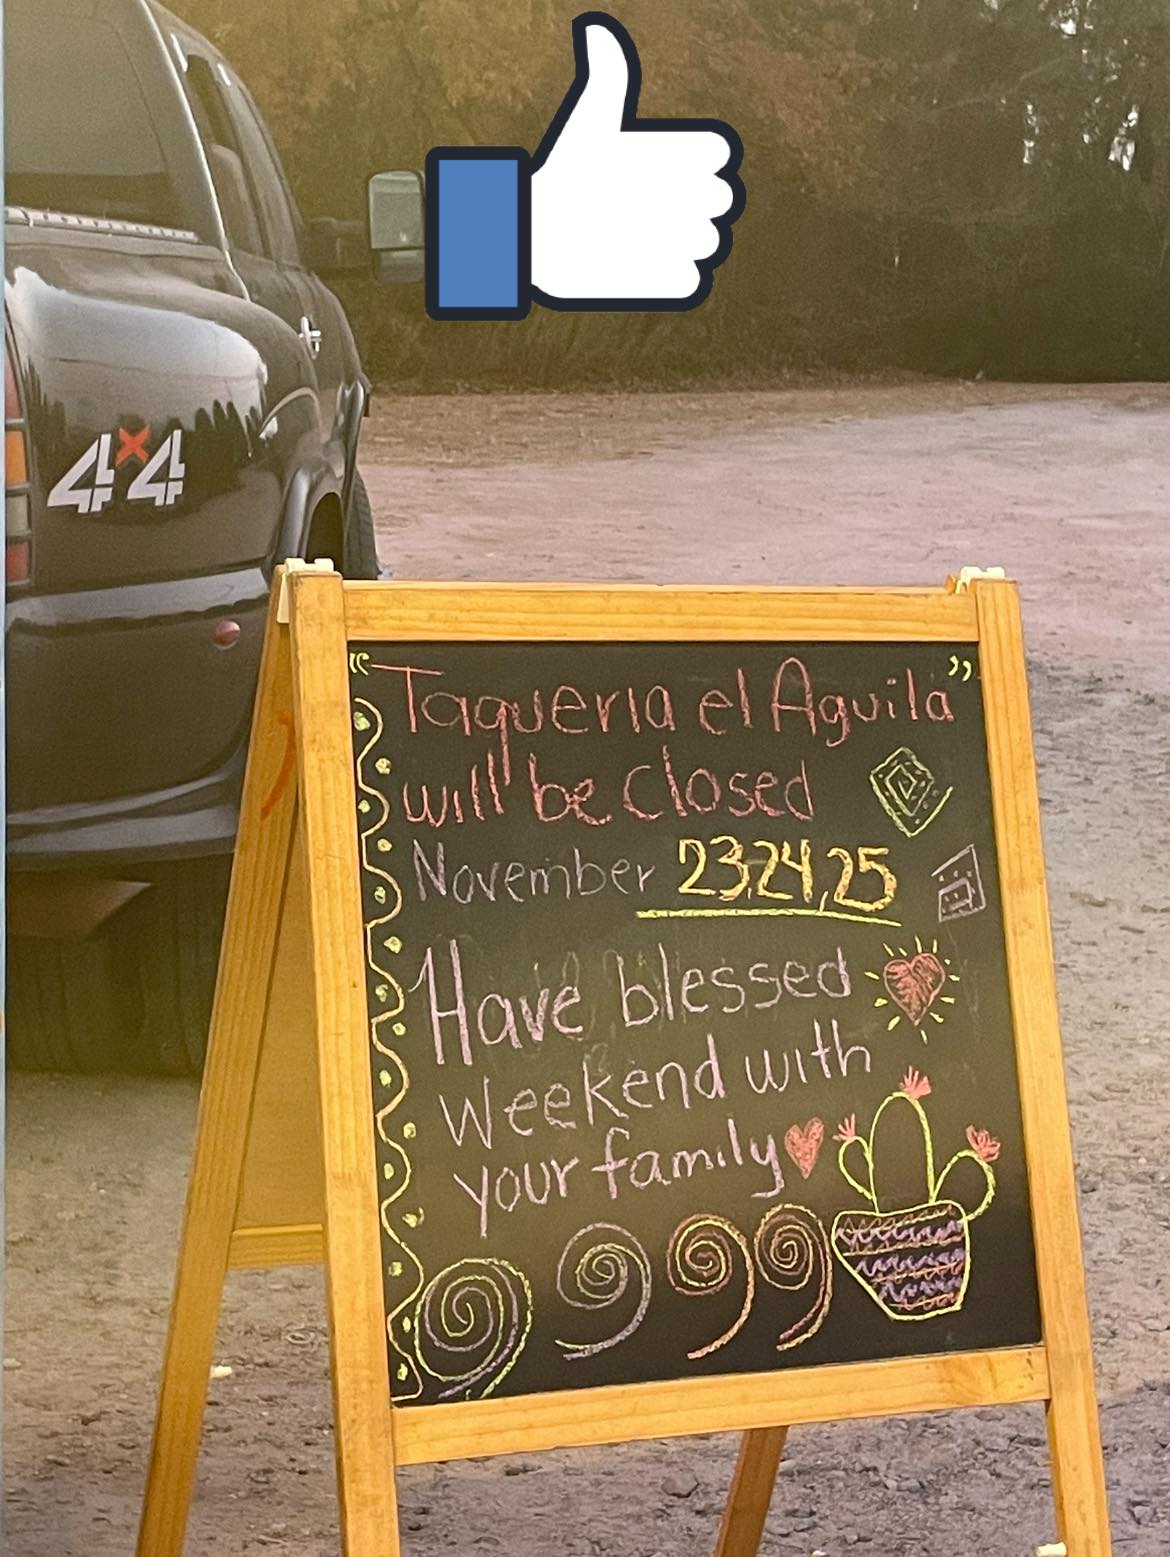 4x4
"Taqueria el Aguila"
will be closed
November 23,24,25
Have blessed
Weekend with
your family